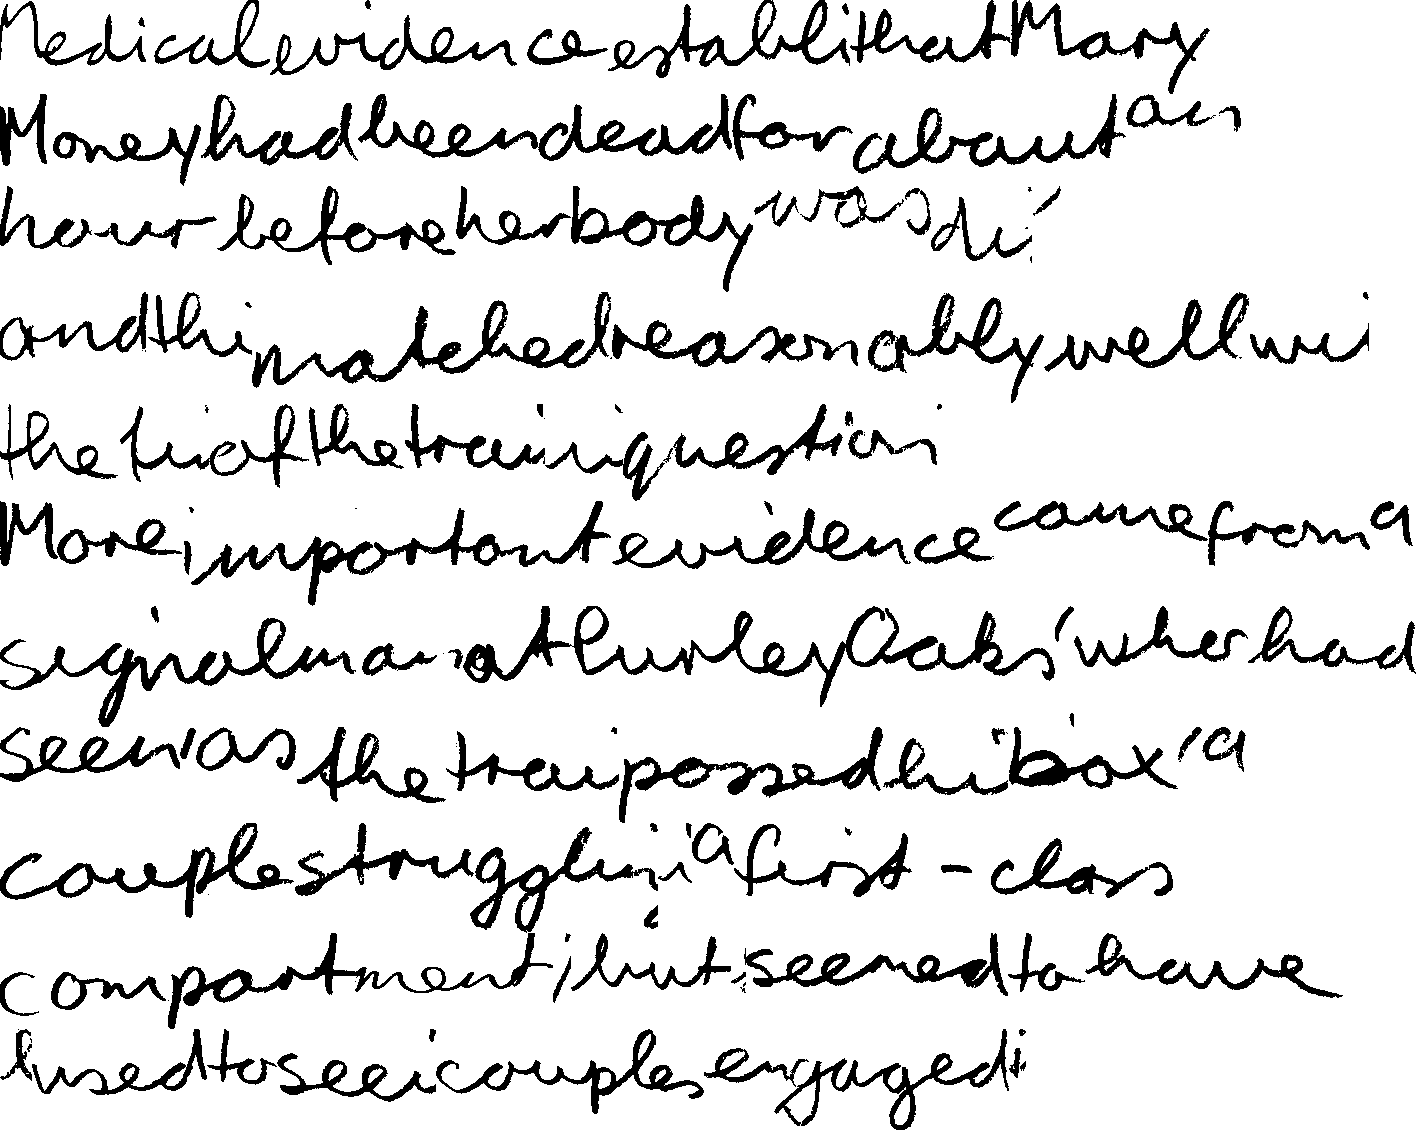 Medical evidence establi that Mary
Money had been dead for about an
hour before her body was di
and thi matched reasonably well wi
the ti of the trai i question
More important evidence came from a
signalman at Purley Oaks, who had
seen, as the trai passed hi box, a
couple struggling i a first-class
compartment, but seemed to have
used to seei couples engaged i